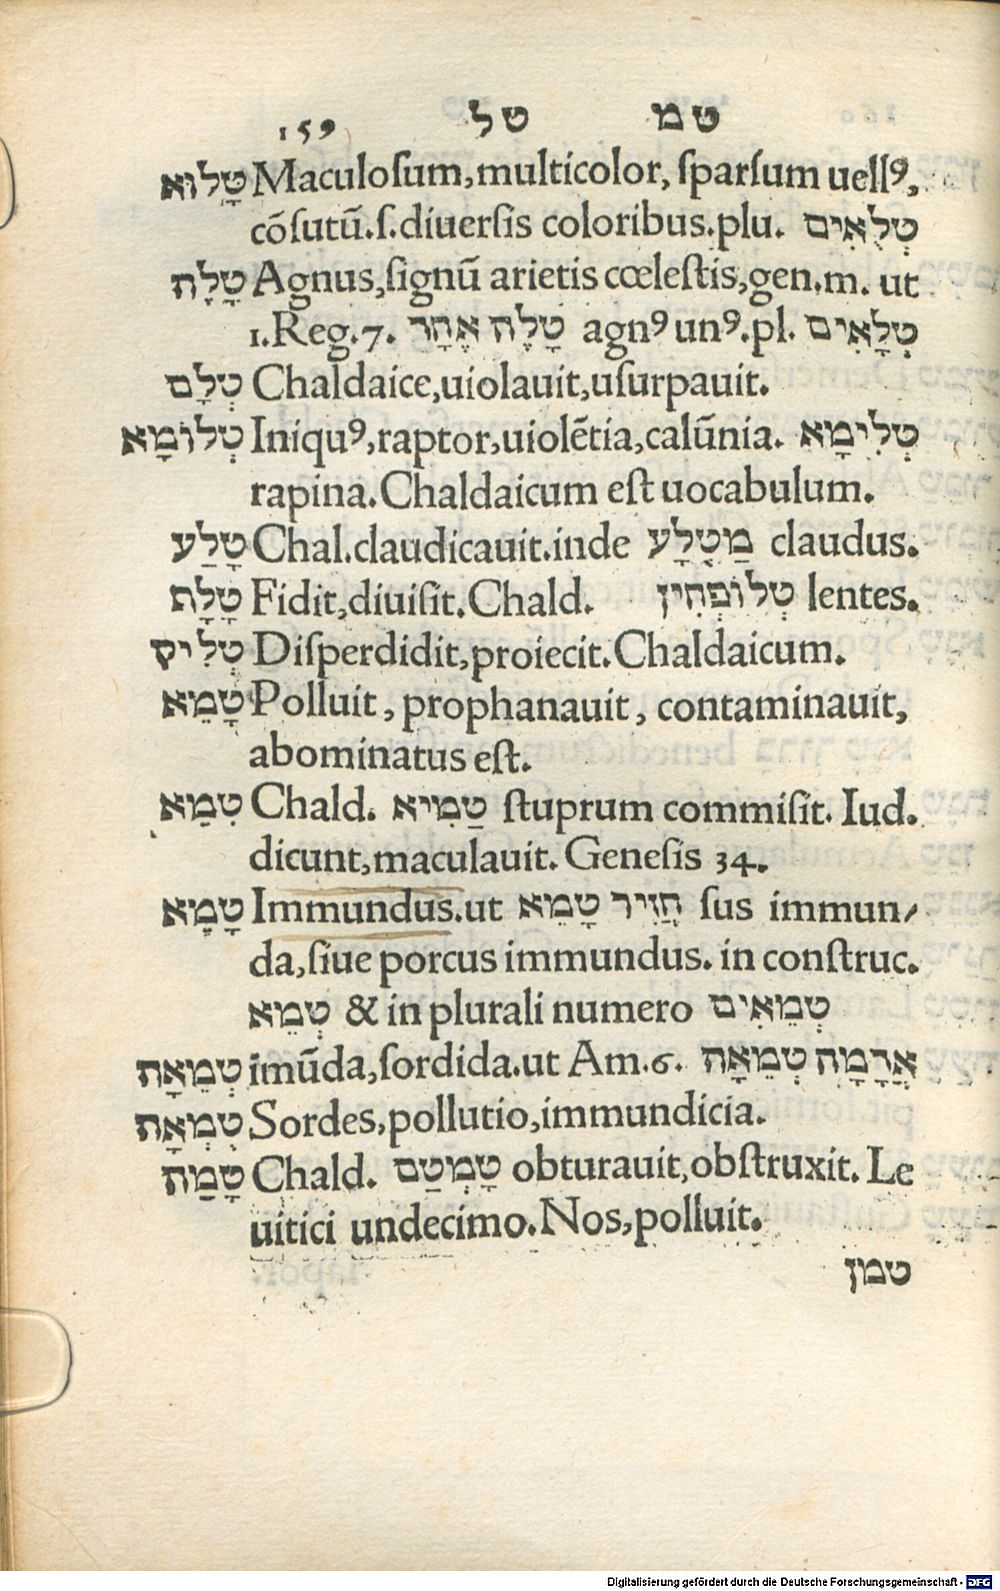 159 טל טמ
טָלוּא Maculosum, multicolor, sparsum uellꝰ,
cōsutū.s.diuersis coloribus.plu. טְלֻאִים
טָלֶה Agnus, signū arietis cœlestis, gen. m. ut
1.Reg.7. טָלֶה אֶחָד agnꝰ unꝰ.pl. טְלָאִים
טְלָם Chaldaice, uiolauit, usurpauit.
טְלוֹמָא Iniquꝰ, raptor, uiolētia, calūnia. טְלִימָא
rapina. Chaldaicum est uocabulum.
טָלַע Chal.claudicauit.inde מַטְלָע claudus.
טָלָח Fidit, diuisit. Chald. טְלוֹפְחִין lentes.
טְלִיק Disperdidit, proiecit. Chaldaicum.
טָמֵא Polluit, prophanauit, contaminauit,
abominatus est.
טִמֵא Chald. טַמִיא stuprum commisit. Iud.
dicunt, maculauit. Genesis 34.
טָמֵא Immundus.ut חֲזִיר טָמֵא sus immun/
da, siue porcus immundus. in construc.
טְמֵא & in plurali numero טְמֵאִים
טְמֵאָה imūda, sordida.ut Am.6. אֲדָמָה טְמֵאָה
טֻמְאָה Sordes, pollutio, immundicia.
טָמַה Chald. טָמְטַם obturauit, obstruxit. Le
uitici undecimo. Nos, polluit.
טמן
Digitalisierung gefördert durch die Deutsche Forschungsgemeinschaft - DFG